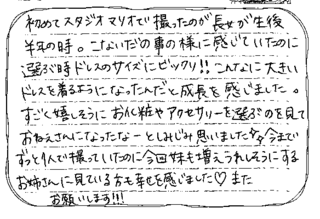 初めてスタジオマリオで撮ったのが長女が生後
半年の時。こないだの事の様に感じていたのに
選ぶ時ドレスのサイズにビックリ!!こんなに大きい
ドレスを着るようになったんだと成長を感じました。
すごく嬉しそうにお化粧やアクセサリーを選ぶのを見て
おねえさんになったなーとしみじみ思いました 今まで
ずっと1人で撮っていたのに今回妹も増えうれしそうにする
お姉さんに見ている方も幸せを感じました♡また
お願いします!!!